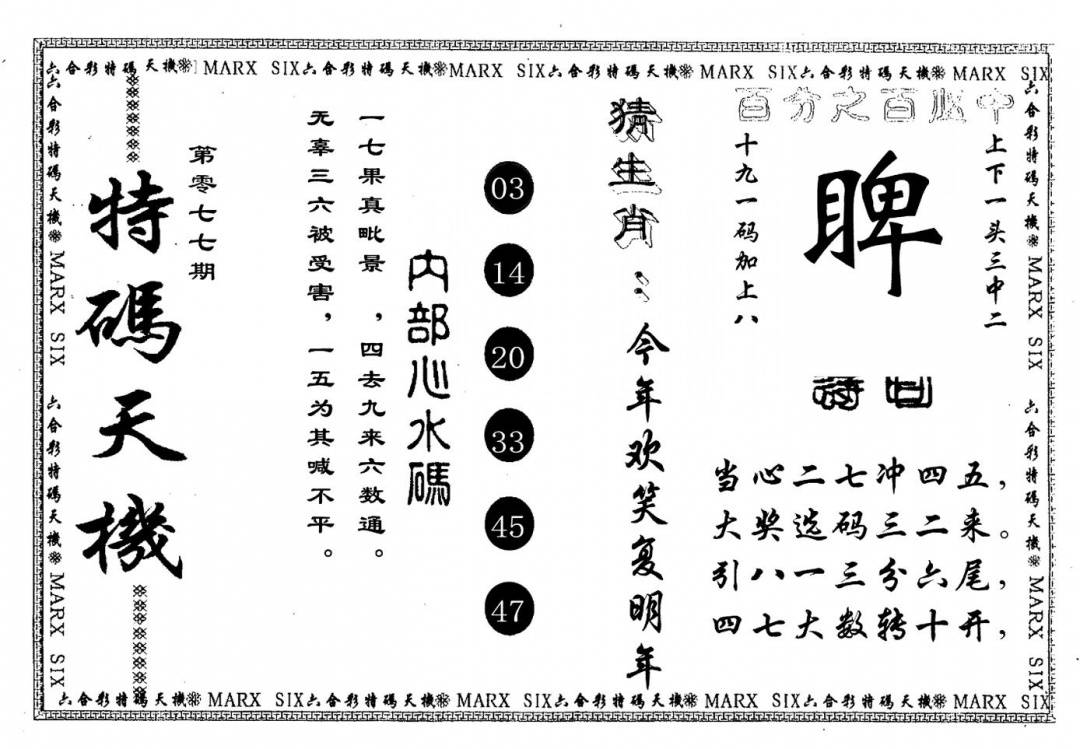 六合彩特碼天機※MARX SIX六合彩特碼天機※MARX SIX六合彩特碼天機※MARX SIX六合彩特碼天機※MARX SIX
六合彩特碼天機※MARX SIX 六合彩特碼天機※MARX SIX
百分之百必中
上下一头三中二
睥
十九一码加上八
詩曰
当心二七冲四五，
大奖选码三二来。
引八一三分六尾，
四七大数转十开，
猜生肖：今年欢笑复明年
03
14
20
33
45
47
内部心水碼
一七果真毗景 ，四去九来六数通。
无辜三六被受害，一五为其喊不平。
第零七七期
特碼天機
六合彩特碼天機※MARX SIX 六合彩特碼天機※MARX SIX
六合彩特碼天機※MARX SIX六合彩特碼天機※MARX SIX六合彩特碼天機※MARX SIX六合彩特碼天機※MARX SIX